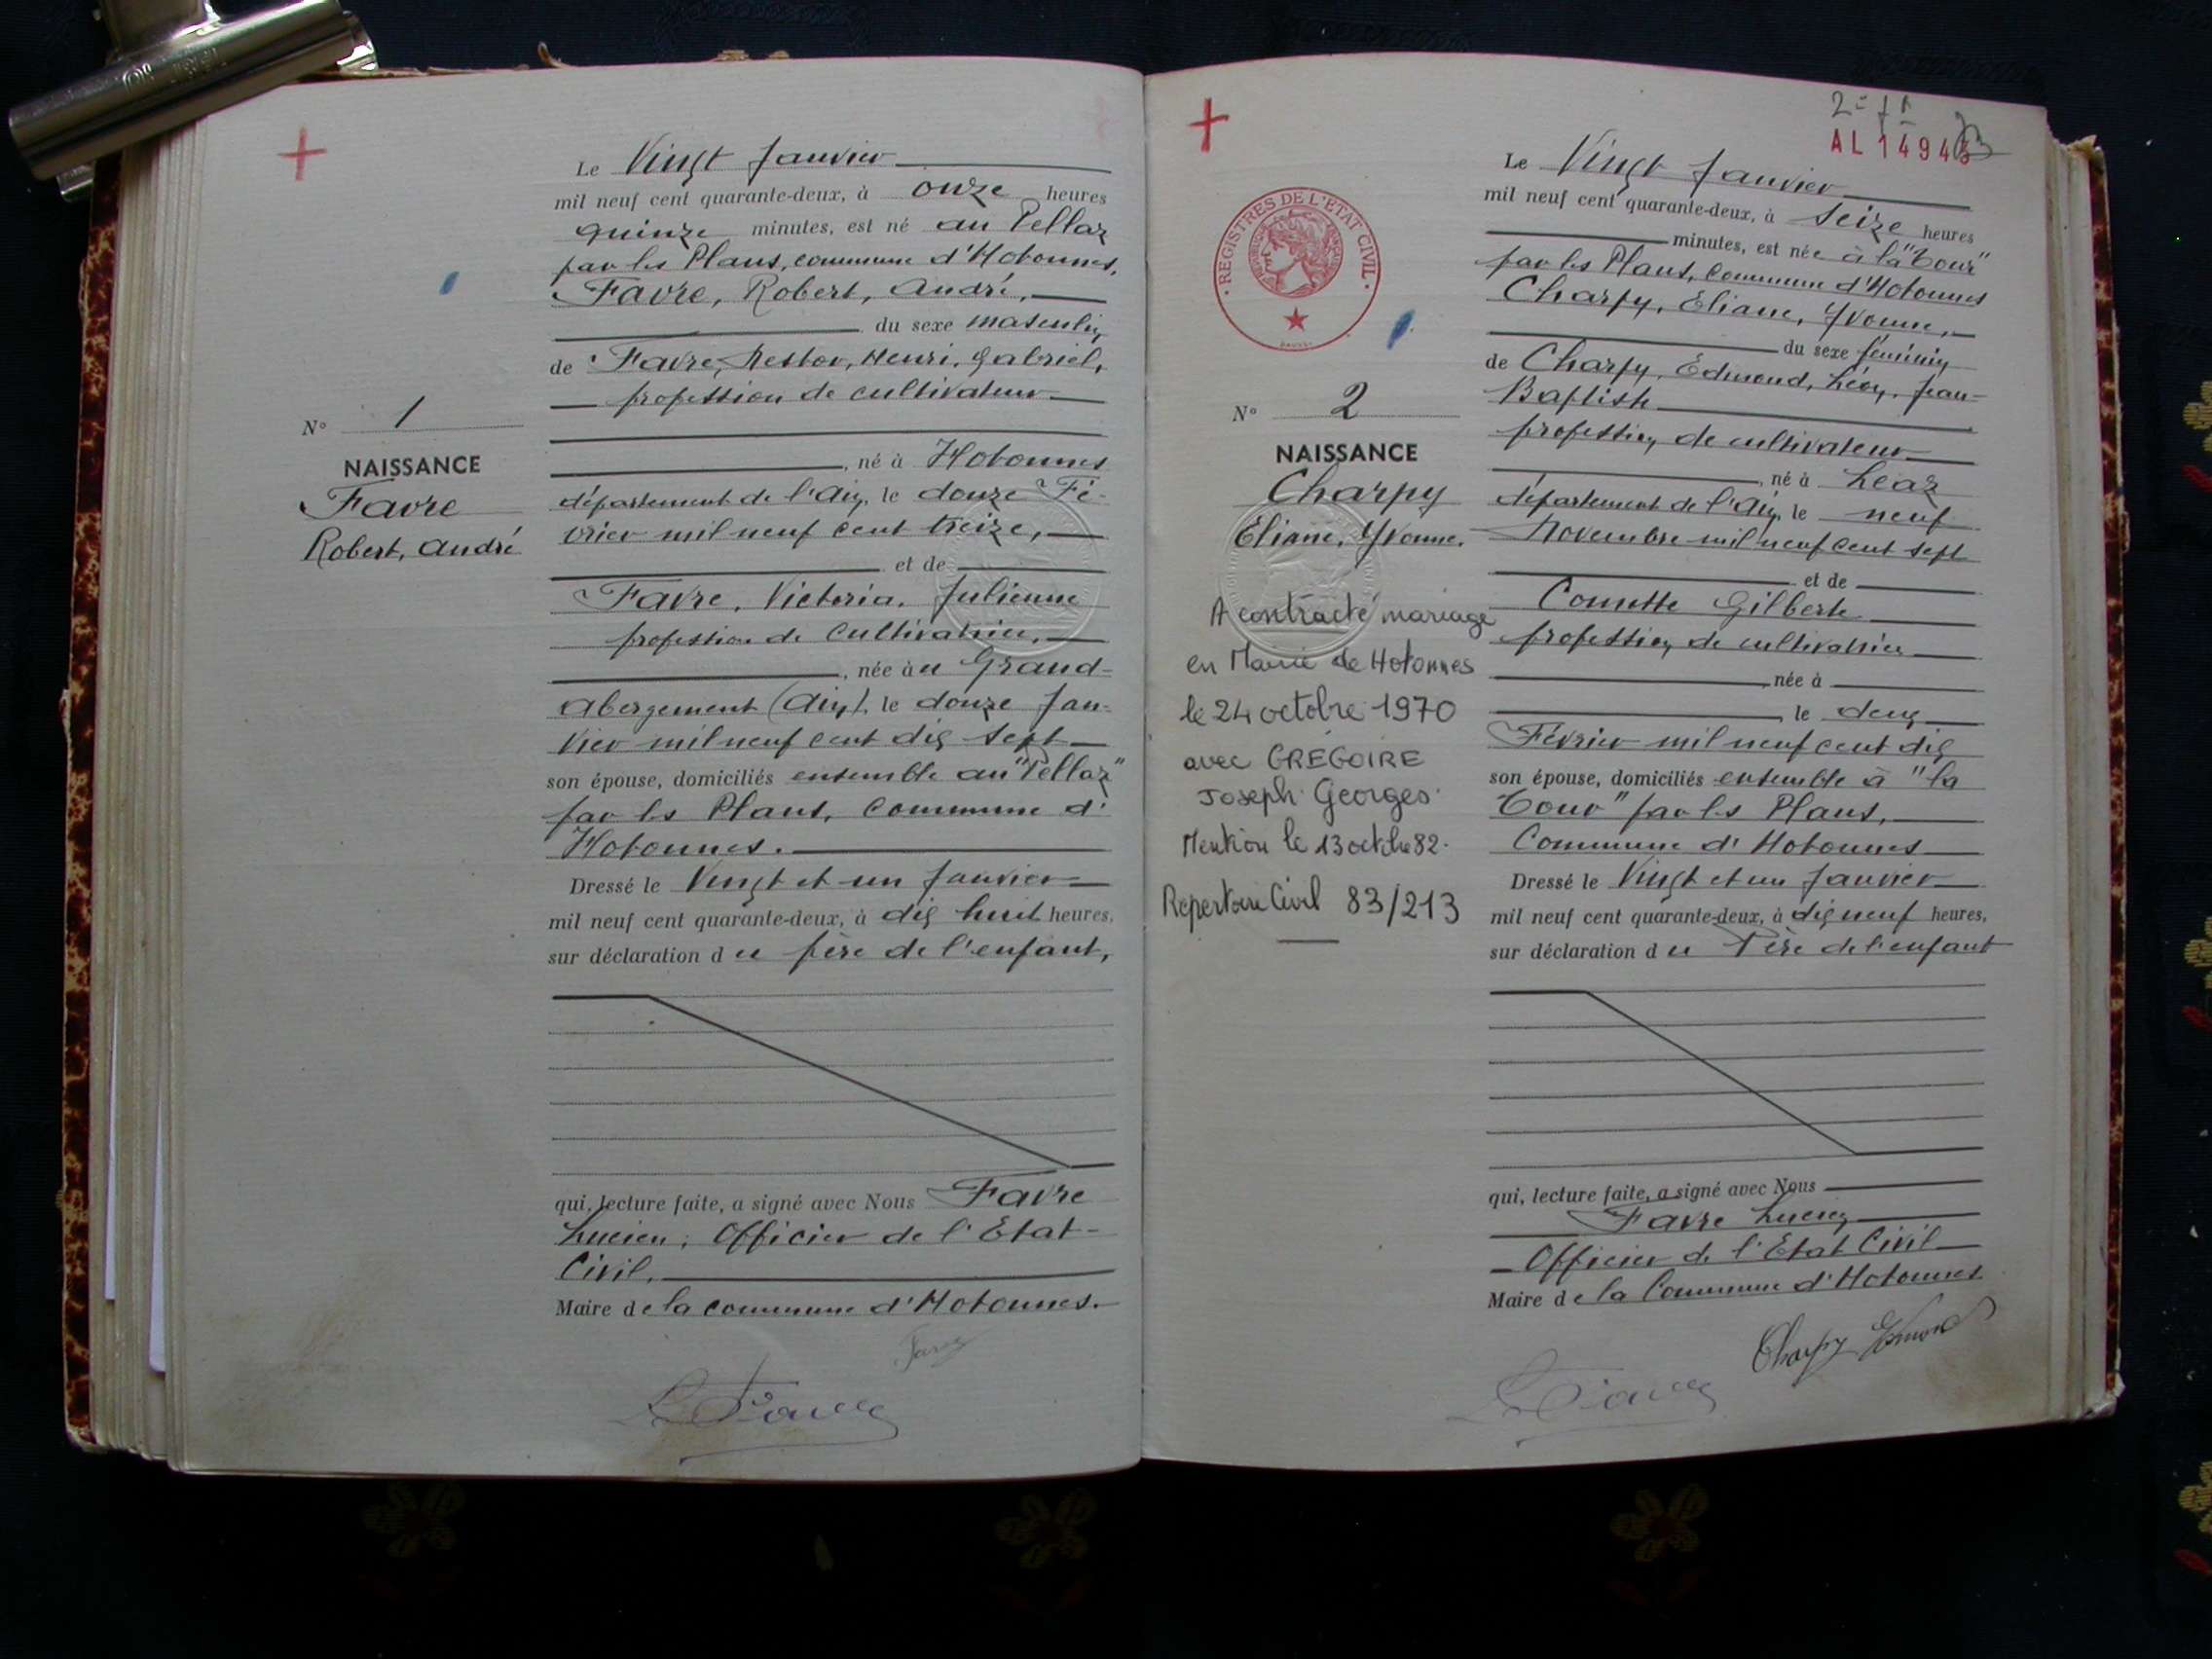 Le Vingt Janvier
mil neuf cent quarante-deux, à onze heures
quinze minutes, est né au Pellaz
par les Plans, commune d'Hotonnes,
Favre, Robert, André,
du sexe masculin
de Favre, Nestor, Henri, Gabriel,
profession de cultivateur
N° 1
NAISSANCE
Favre
Robert, André
, né à Hotonnes
département de l'Ain, le douze Fé-
vrier mil neuf cent treize,
et de
Favre, Victoria, Julienne
profession de cultivatrice,
, née au Grand-
Abergement (Ain), le douze Jan-
vier mil neuf cent dix sept
son épouse, domiciliés ensemble au "Pellaz"
par les Plans, commune d'
Hotonnes.
Dressé le Vingt et un Janvier
mil neuf cent quarante-deux, à dix huit heures,
sur déclaration du père de l'enfant,
qui, lecture faite, a signé avec Nous Favre
Lucien, Officier de l'Etat-
Civil,
Maire de la commune d'Hotonnes.
Favre
L. Favre
AL 1494
REGISTRES DE L'ETAT CIVIL
N° 2
NAISSANCE
Charpy
Eliane, Yvonne.
A contracté mariage
en Mairie de Hotonnes
le 24 octobre 1970
avec GREGOIRE
Joseph Georges
Mention le 13 octobre 82.
Repertoire Civil 83/213
Le Vingt Janvier
mil neuf cent quarante-deux, à seize heures
minutes, est née à la "Tour"
par les Plans, commune d'Hotonnes
Charpy, Eliane, Yvonne,
du sexe féminin
de Charpy, Edmond, Léon, Jean-
Baptiste
profession de cultivateur
, né à Léaz
département de l'Ain, le neuf
Novembre mil neuf cent sept
et de
Gilberte
profession de cultivatrice
, née à
, le deux
Février mil neuf cent dix
son épouse, domiciliés ensemble à "la
Tour" par les Plans,
Commune d'Hotonnes
Dressé le Vingt et un Janvier
mil neuf cent quarante-deux, à dix neuf heures,
sur déclaration du Père de l'enfant
qui, lecture faite, a signé avec Nous
Favre Lucien
Officier de l'Etat Civil
Maire de la Commune d'Hotonnes
Charpy Edmond
L. Favre